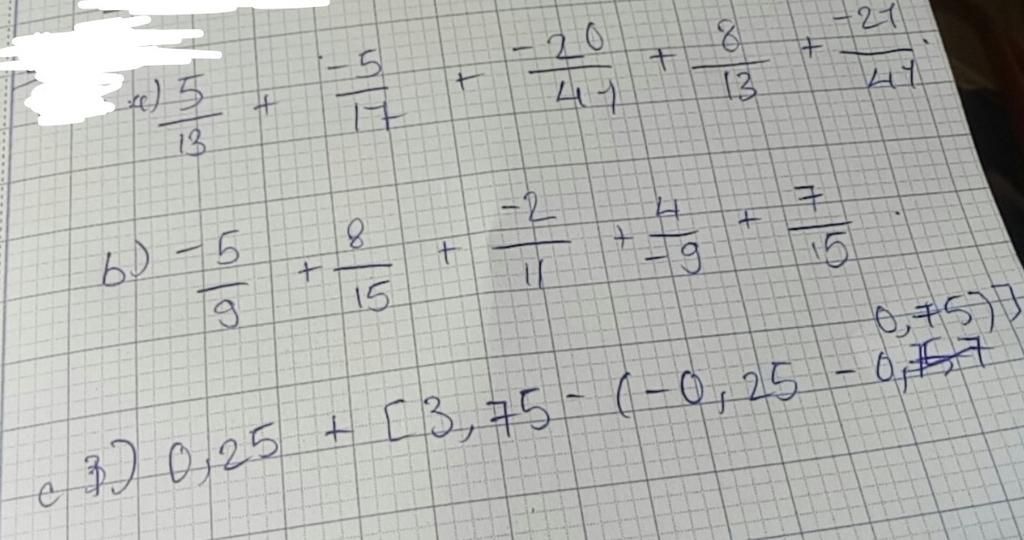 a) 5/13 + -5/17 + -20/41 + 8/13 + -21/41
b) -5/9 + 8/15 + -2/11 + 4/-9 + 7/15
c) 0,25 + [3,75 - (-0,25 - 0,75)]